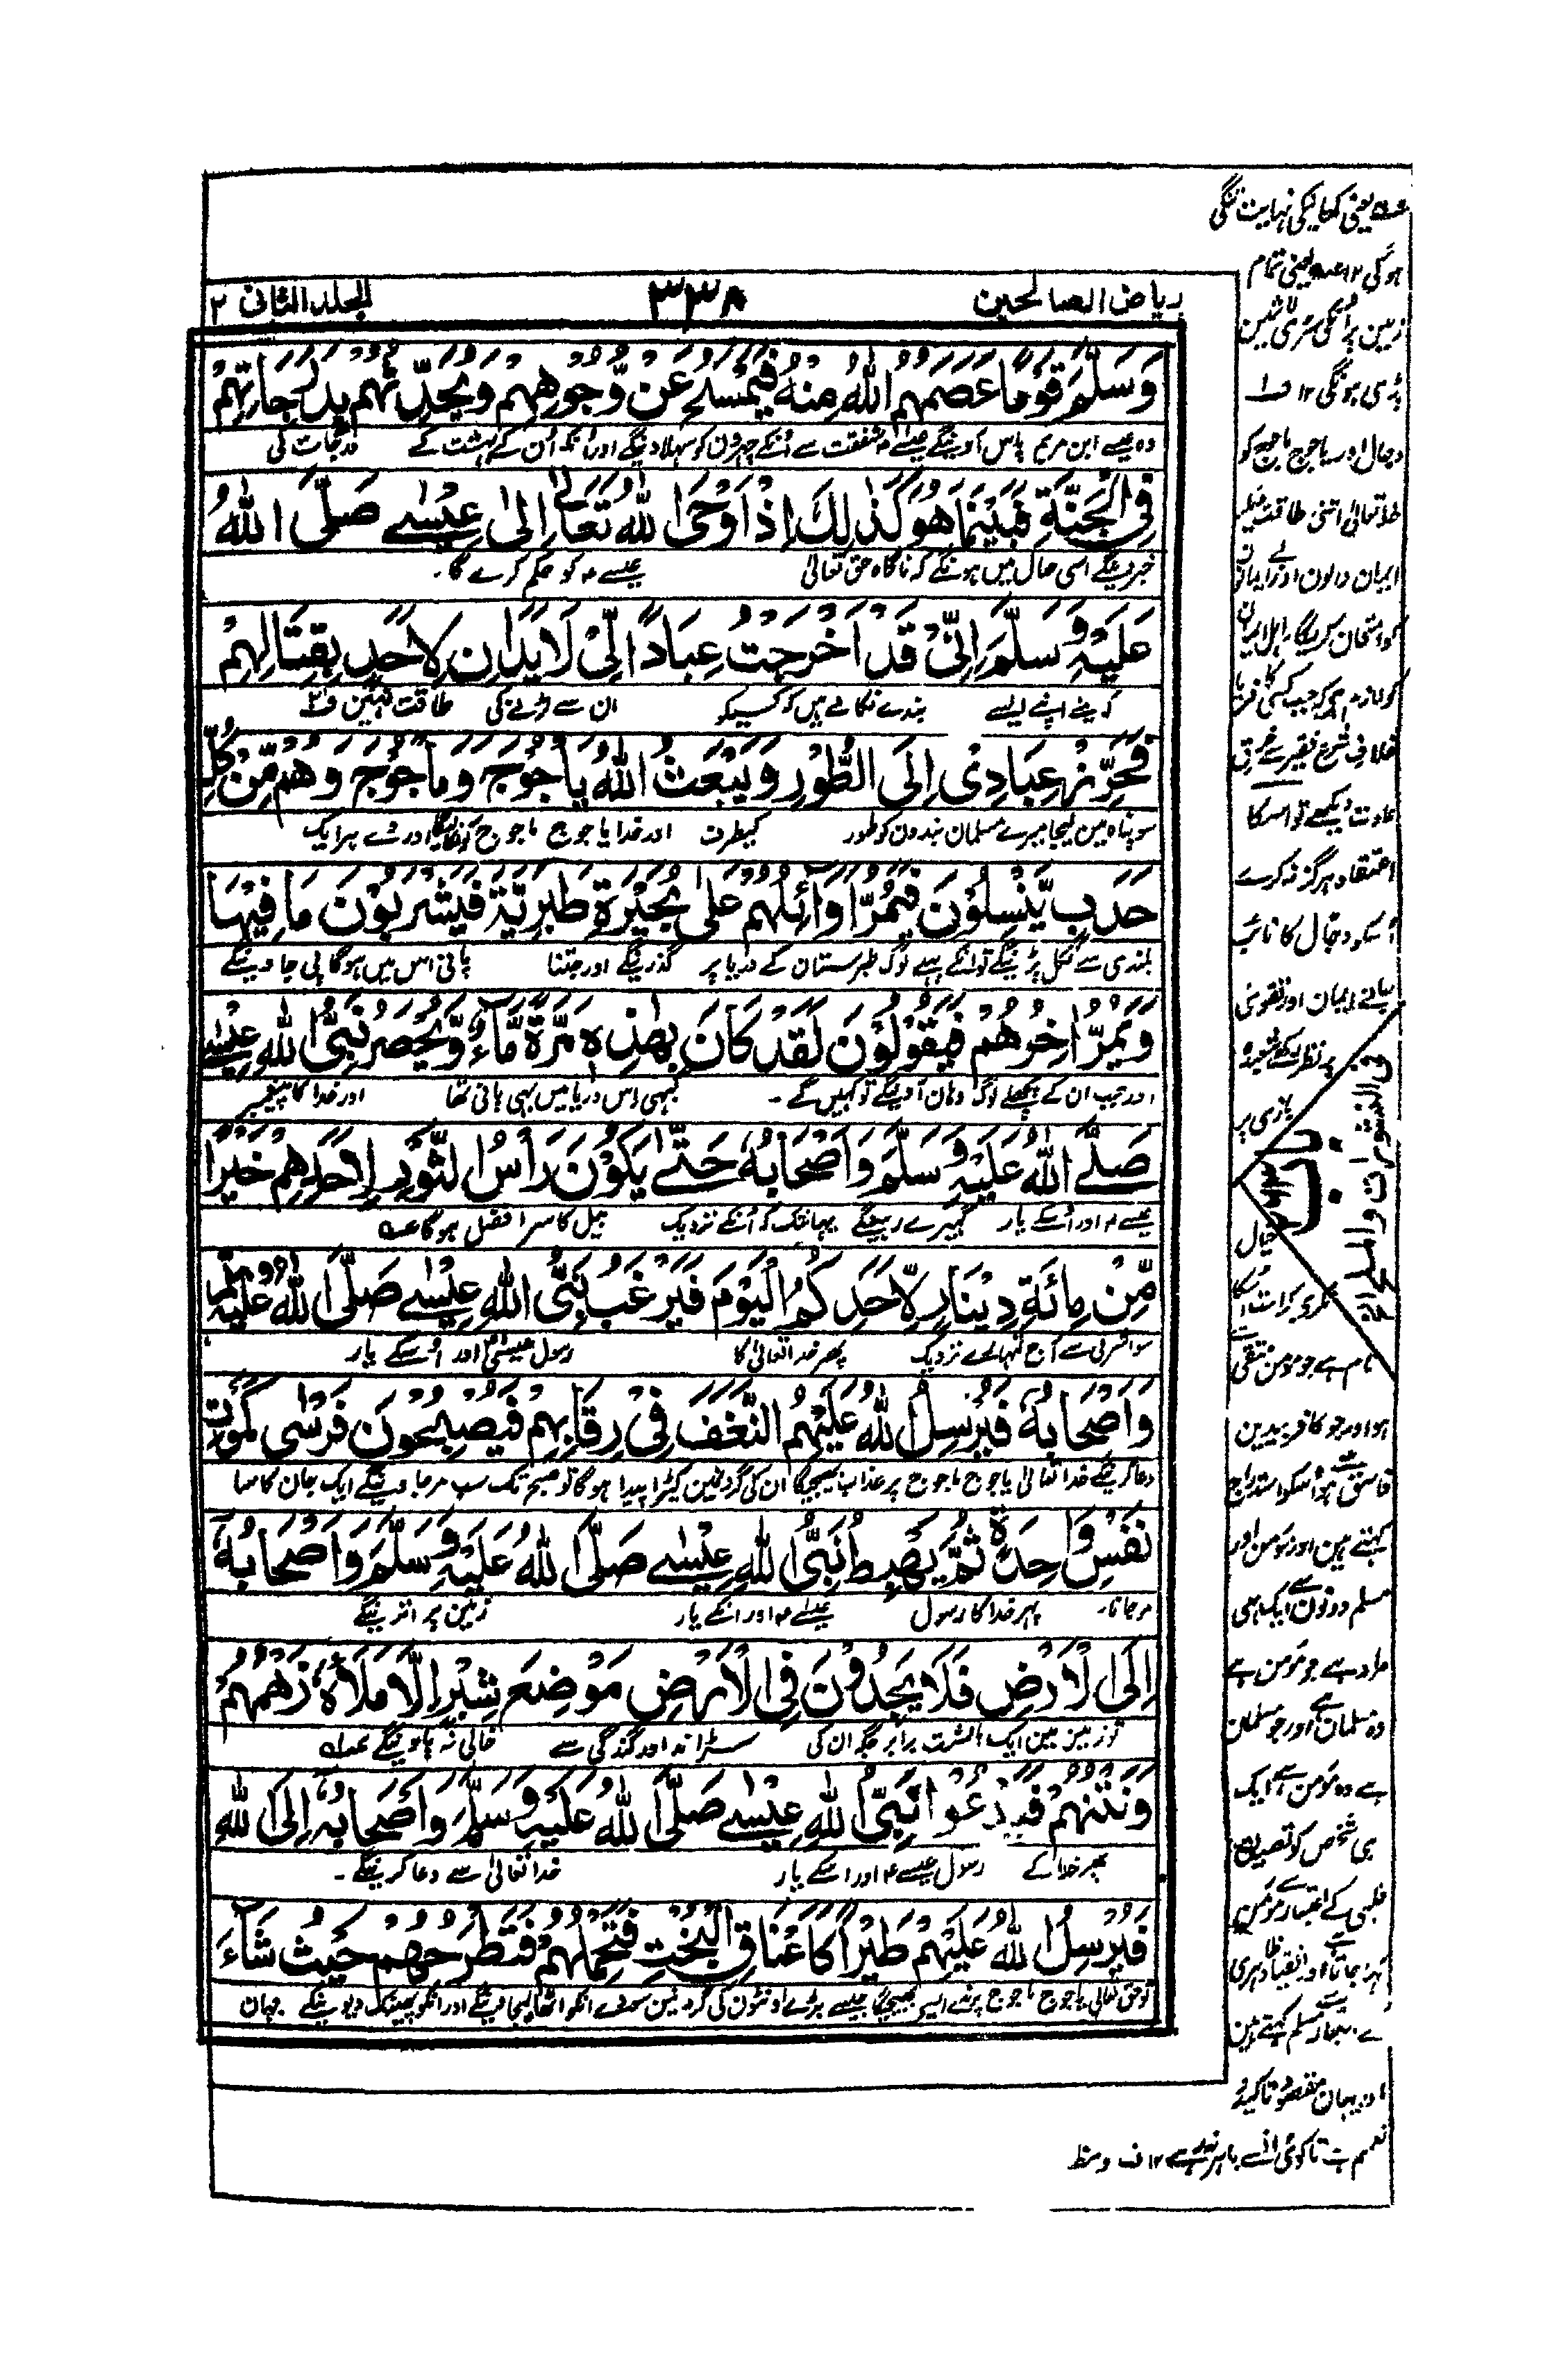 رياض الصالحين ٣٣٨ الجلد الثانی ٢
وَسَلَّمَ قَوْمًا عَصَمَهُمُ اللّٰهُ مِنْهُ فَيَمْسَحُ عَنْ وُّجُوْهِهِمْ وَيُحَدِّثُهُمْ بِدَرَجَاتِهِمْ
وہ عیسے ابن مریم پاس آوینگے عیسے ۴ شفقت سے اُنکے چہرون کو سہلادینگے اور اُنکو اُن کے بہشت کے درجات کی
فِی الْجَنَّةِ فَبَيْنَمَا هُوَ كَذٰلِكَ اِذْ اَوْحَى اللّٰهُ تَعَالٰى اِلٰى عِيْسٰے صَلَّى اللّٰهُ
خبر دینگے اسی حال میں ہونگے کہ ناگاہ حق تعالٰی عیسے ۴ کو حکم کرے گا۔
عَلَيْهِ وَسَلَّمَ اِنِّیْ قَدْ اَخْرَجْتُ عِبَادًا لِّیْ لَا يَدَانِ لِاَحَدٍ بِقِتَالِهِمْ
کہ مینے اپنے ایسے بندے نکالے ہیں کہ کسیکو ان سے لڑنے کی طاقت نہین ف۲
فَحَرِّزْ عِبَادِیْ اِلَى الطُّوْرِ وَيَبْعَثُ اللّٰهُ يَاجُوْجَ وَمَاجُوْجَ وَهُمْ مِّنْ كُلِّ
سو پناہ مین لیجا میرے مسلمان بندون کو طور کیطرف اور خدا یاجوج ماجوج کو نکالیگا اور وے ہر ایک
حَدَبٍ يَّنْسِلُوْنَ فَيَمُرُّ اَوَائِلُهُمْ عَلٰى بُحَيْرَةِ طَبَرِيَّةَ فَيَشْرَبُوْنَ مَا فِيْهَا
بلندی سے نکل پڑینگے تو انکے پہلے لوگ طبرستان کے دریا پر گذرینگے اور جتنا پانی اس میں ہوگا پی جاوینگے
وَيَمُرُّ اٰخِرُهُمْ فَيَقُوْلُوْنَ لَقَدْ كَانَ بِهٰذِهٖ مَرَّةً مَّاءٌ وَّيُحْصَرُ نَبِیُّ اللّٰهِ عِيْسٰے
اور جب ان کے پچھلے لوگ وہان آوینگے تو کہیں گے ۔ کبہی اس دریا میں بہی پانی تھا اور خدا کا پیغمبر
صَلَّى اللّٰهُ عَلَيْهِ وَسَلَّمَ وَاَصْحَابُهٗ حَتّٰے يَكُوْنَ رَاْسُ الثَّوْرِ لِاَحَدِهِمْ خَيْرًا
عیسے ۴ اور اُسکے یار گہیرے رہینگے یہانتک کہ اُنکے نزدیک بیل کا سر افضل ہوگا عہ
مِّنْ مِائَةِ دِيْنَارٍ لِّاَحَدِكُمُ الْيَوْمَ فَيَرْغَبُ نَبِیُّ اللّٰهِ عِيْسٰے صَلَّى اللّٰهُ عَلَيْهِ وَسَلَّمَ
سو اشرفی سے آج تمہارے نزدیک پھر خدا تعالٰی کا رسول عیسٰی اور اُسکے یار
وَاَصْحَابُهٗ فَيُرْسِلُ اللّٰهُ عَلَيْهِمُ النَّغَفَ فِیْ رِقَابِهِمْ فَيُصْبِحُوْنَ فَرْسٰى كَمَوْتِ
دعا کرینگے خدا تعالٰی یاجوج ماجوج پر عذاب بھیجیگا ان کی گردنمین کیڑا پیدا ہوگا تو صبح تک سب مرجاوینگے ایک جان کا سا
نَفْسٍ وَّاحِدَةٍ ثُمَّ يَهْبِطُ نَبِیُّ اللّٰهِ عِيْسٰے صَلَّى اللّٰهُ عَلَيْهِ وَسَلَّمَ وَاَصْحَابُهٗ
مرجانا۔ پہر خدا کا رسول عیسٰے ۴ اور انکے یار زمین پر اترینگے
اِلَى الْاَرْضِ فَلَا يَجِدُوْنَ فِی الْاَرْضِ مَوْضِعَ شِبْرٍ اِلَّا مَلَاَهٗ زَهَمُهُمْ
تو زمین مین ایک بالشت برابر جگہ ان کی سڑاند اور گندگی سے خالی نہ پاوینگے عہ
وَنَتْنُهُمْ فَيَدْعُوْا نَبِیُّ اللّٰهِ عِيْسٰے صَلَّى اللّٰهُ عَلَيْهِ وَسَلَّمَ وَاَصْحَابُهٗ اِلَى اللّٰهِ
پھر خدا کے رسول عیسے ۴ اور اسکے یار خدا تعالیٰ سے دعا کرینگے ۔
فَيُرْسِلُ اللّٰهُ عَلَيْهِمْ طَيْرًا كَاَعْنَاقِ الْبُخْتِ فَتَحْمِلُهُمْ فَتَطْرَحُهُمْ حَيْثُ شَآءَ
توحق تعالٰی یاجوج ماجوج پر بھیجیگا جیسے بڑے اونٹون کی گردنین سووے انکو اٹھا لیجاوینگے اور انکو پھینک دیوینگے جہان
عہ یعنی کھانیکی نہایت تنگی
ہوگی ۱۲ عہ یعنی تمام
زمین پر انکی سڑی لاشین
پڑی ہونگی ۱۲ ف۱
دجال اور یاجوج ماجوج کو
خدا تعالی اتنی طاقت دیکر
ایمان والون اور بے ایمانون
کا امتحان کریگا اہل ایمان
کو لازم ہے کہ جب کسی کافر یا
خلاف شرع فقیر سے خرق
عادت دیکھے تو اسکا
اعتقاد ہرگز نہ کرے
اُسکو دجال کا نائب
جانے ایمان اور تقوی
پہ نظر رکھے شعبدہ
بازی پر
خیال
نکرے کرامت اُسکا
نام ہے جو مومن متقی سے
ہو اور جو کافر بیدین
فاسق سے ہو اُسکو استدراج
کہتے ہین اور مومن اور
مسلم دونون سے ایک ہی
مراد ہے جو مومن ہے
وہ مسلمان ہے اور جو مسلمان
ہے وہ مومن ہے ایک
ہی شخص کو تصدیق
قلبی کے اعتبار سے مومن
کہا جاتا ہے اور انقیاد ظاہری
کے اعتبار سے مسلم کہتے ہین
اور یہان مقصود تاکید
تعمیم ہے تا کوئی اس سے باہر نہ رہے ۱۲
فی المنثورات والملح